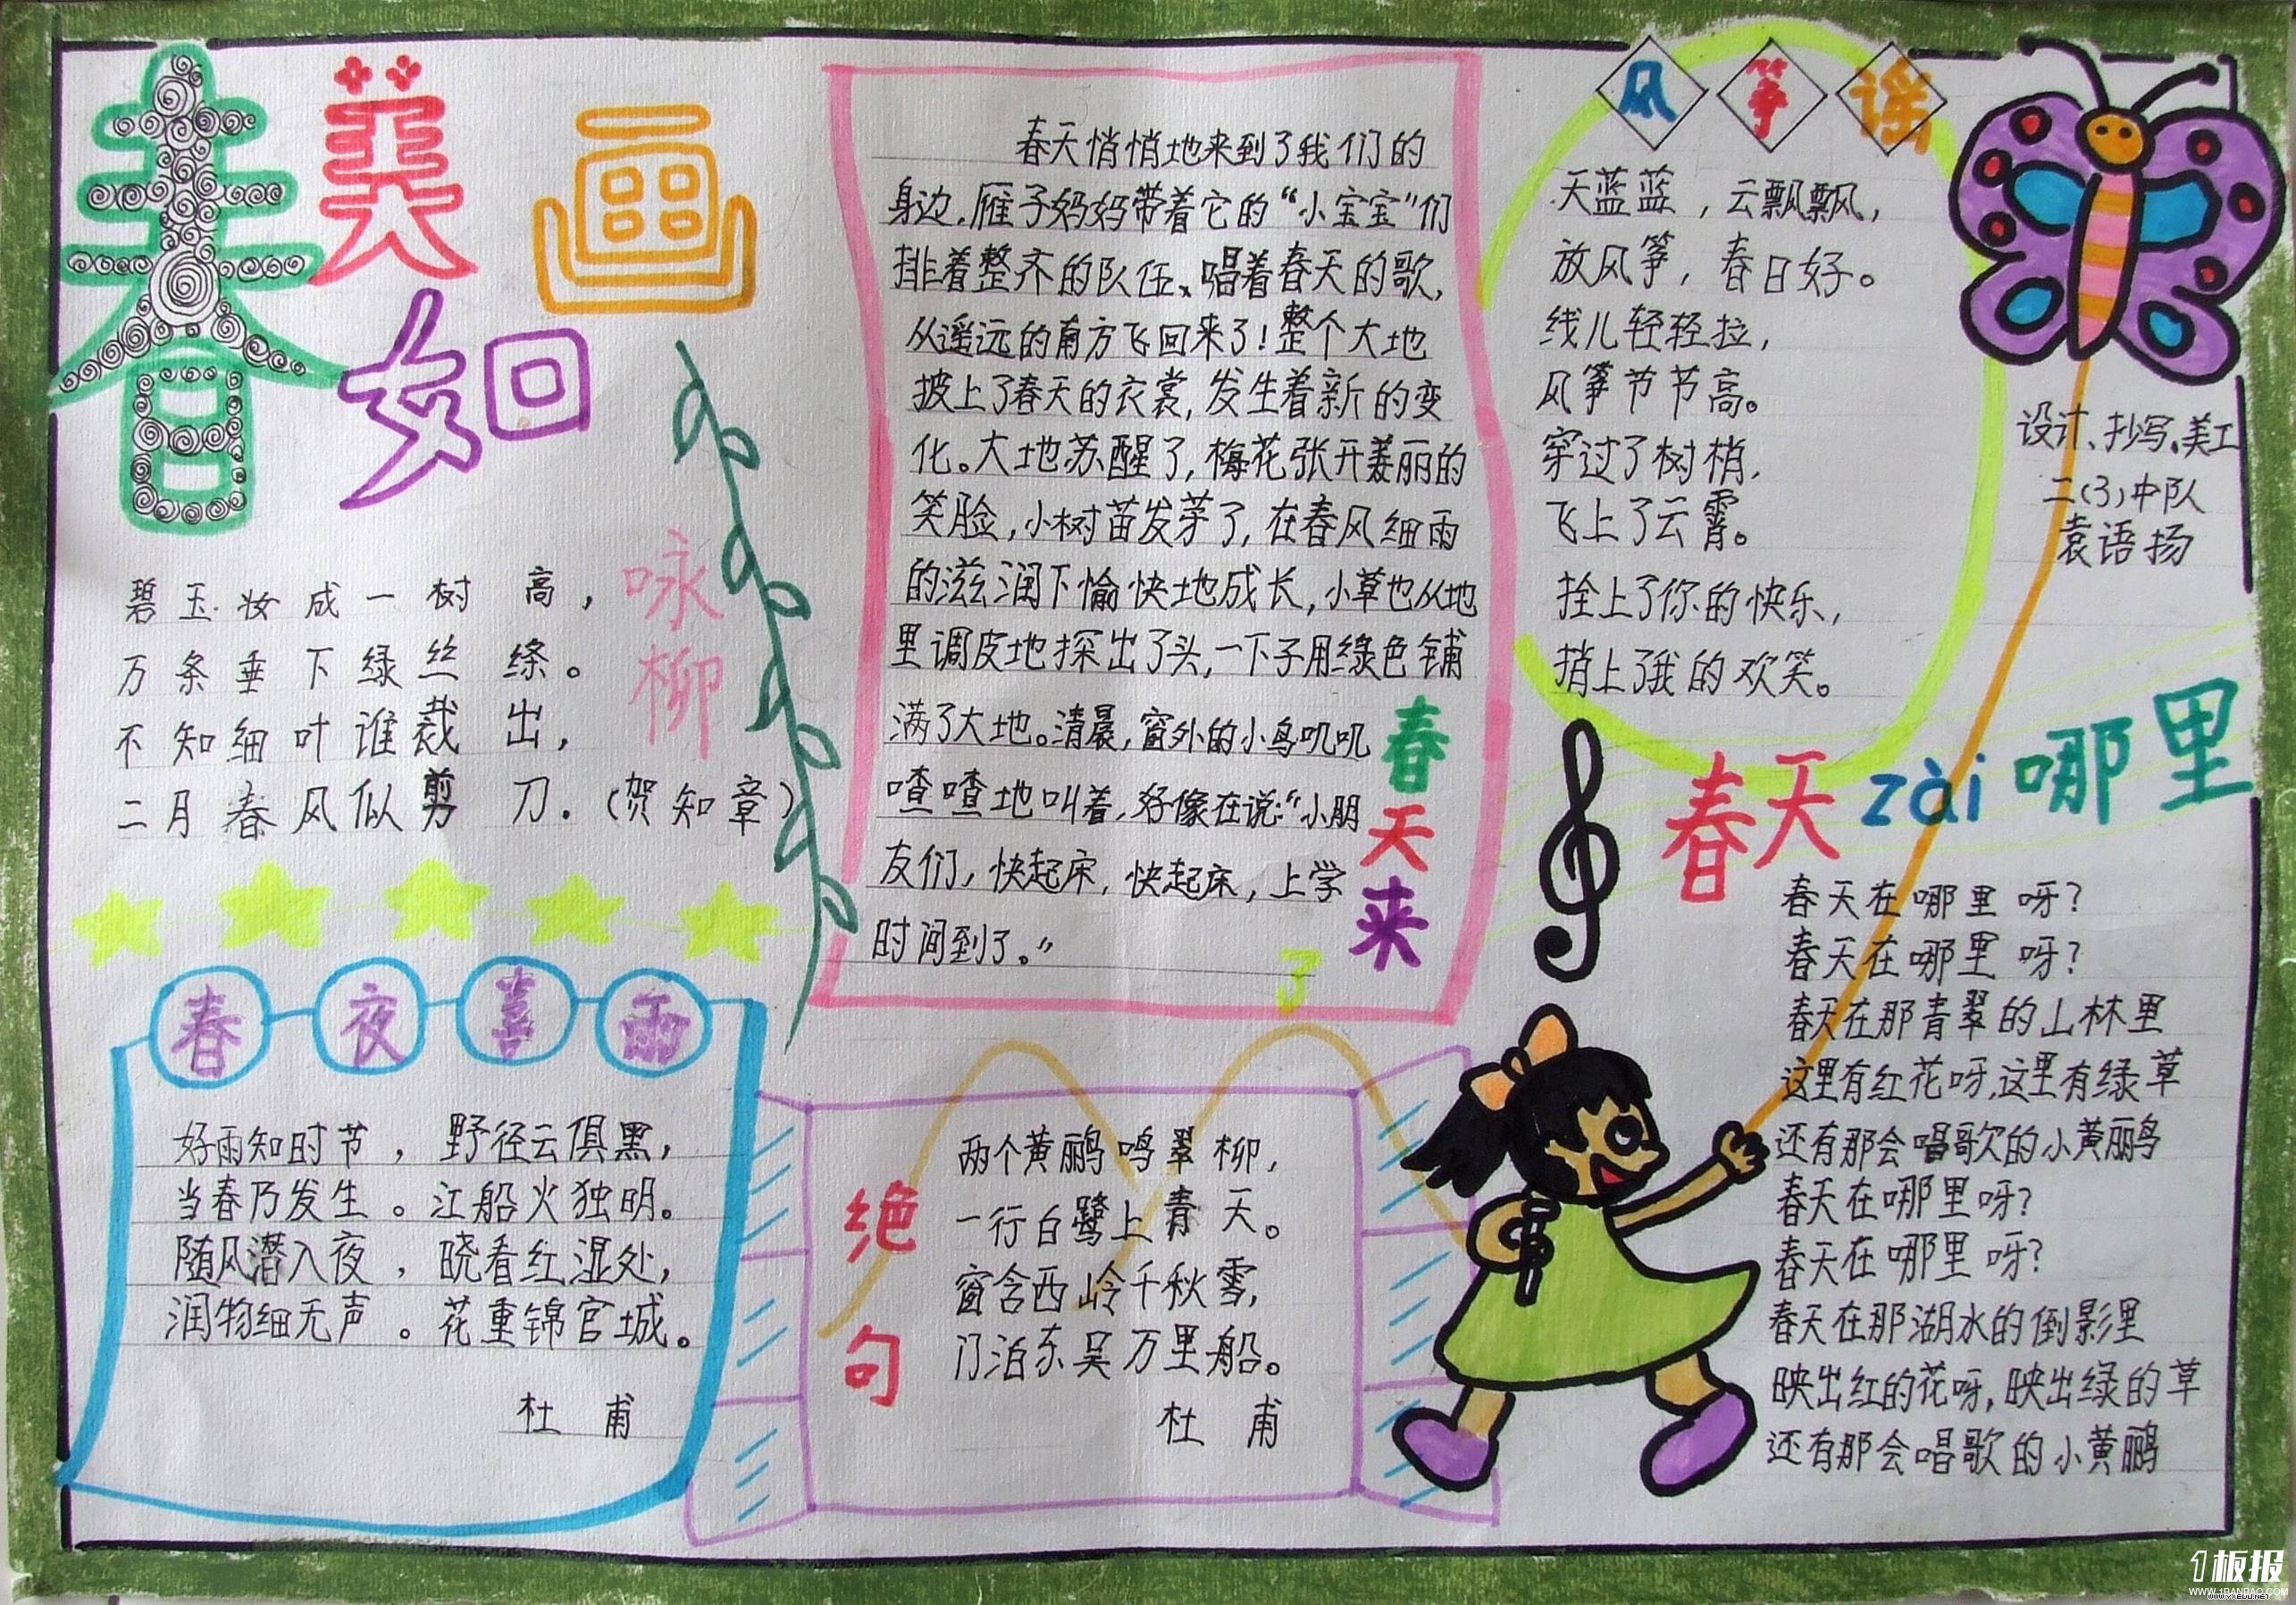 春美如画
咏柳
碧玉妆成一树高，
万条垂下绿丝绦。
不知细叶谁裁出，
二月春风似剪刀.（贺知章）
春夜喜雨
好雨知时节，野径云俱黑，
当春乃发生。江船火独明。
随风潜入夜，晓看红湿处，
润物细无声。花重锦官城。
杜甫
春天来了
春天悄悄地来到了我们的
身边.雁子妈妈带着它的“小宝宝”们
排着整齐的队伍、唱着春天的歌，
从遥远的南方飞回来了！整个大地
披上了春天的衣裳，发生着新的变
化。大地苏醒了，梅花张开美丽的
笑脸，小树苗发芽了，在春风细雨
的滋润下愉快地成长，小草也从地
里调皮地探出了头，一下子用绿色铺
满了大地。清晨，窗外的小鸟叽叽
喳喳地叫着，好像在说：“小朋
友们，快起床，快起床，上学
时间到了。”
绝句
两个黄鹂鸣翠柳，
一行白鹭上青天。
窗含西岭千秋雪，
门泊东吴万里船。
杜甫
风筝谣
天蓝蓝，云飘飘，
放风筝，春日好。
线儿轻轻拉，
风筝节节高。
穿过了树梢，
飞上了云霄。
拴上了你的快乐，
捎上了我的欢笑。
设计、抄写、美工
二(3)中队
袁语扬
春天zài哪里
春天在哪里呀？
春天在哪里呀？
春天在那青翠的山林里
这里有红花呀，这里有绿草
还有那会唱歌的小黄鹂
春天在哪里呀？
春天在哪里呀？
春天在那湖水的倒影里
映出红的花呀，映出绿的草
还有那会唱歌的小黄鹂
1板报
WWW.1BANBAO.COM